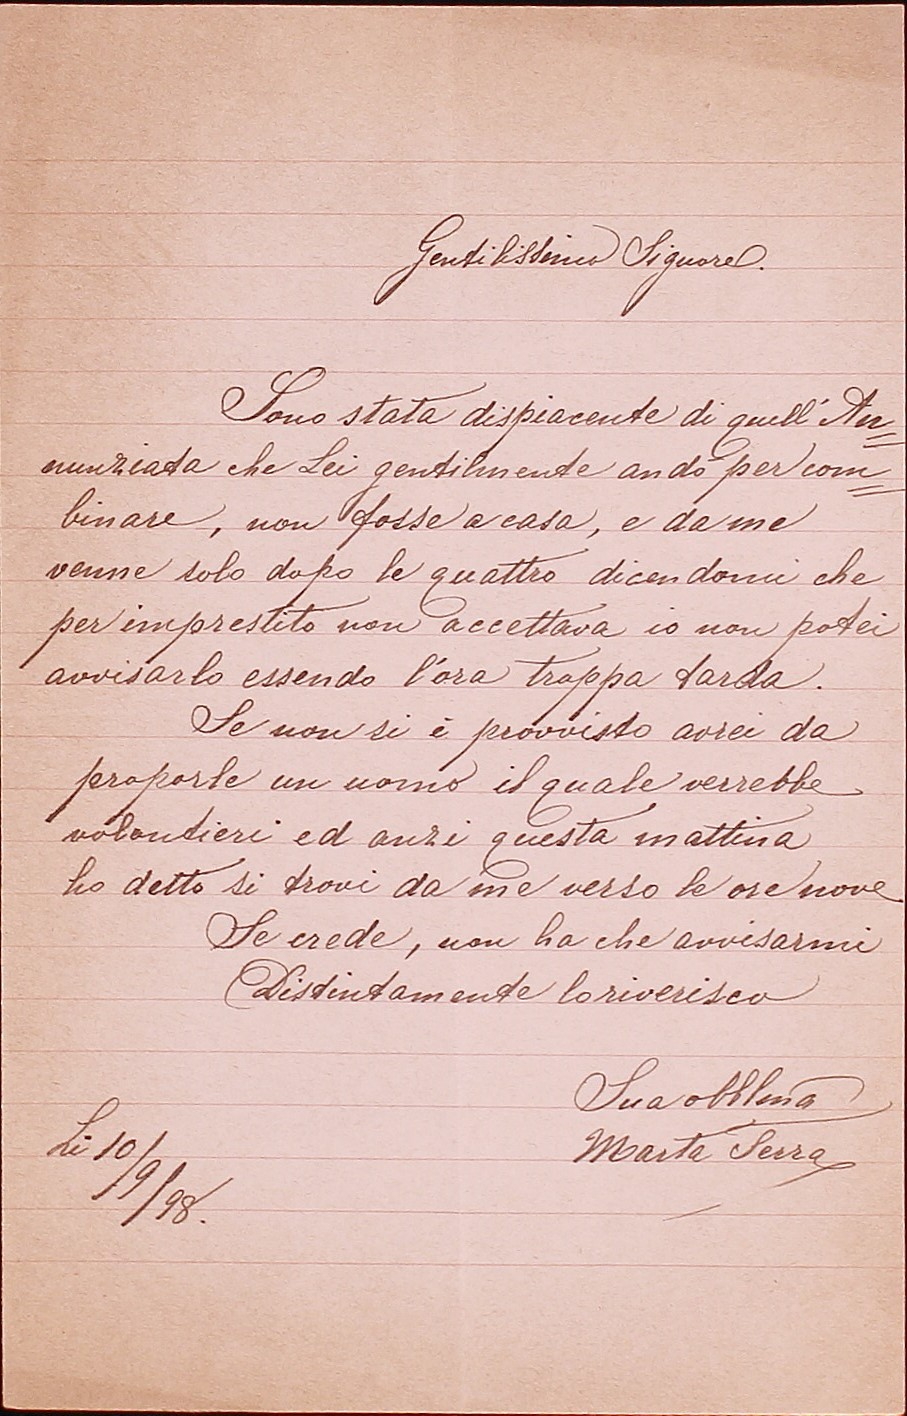 Gentilissimo Signore.
Sono stata dispiacente di quell'An=
nunziata che Lei gentilmente andò per com=
binare, non fosse a casa, e da me
venne solo dopo le quattro dicendomi che
per imprestito non accettava io non potei
avvisarlo essendo l'ora troppa tarda.
Se non si è provvisto avrei da
proporle un uomo il quale verrebbe
volontieri ed anzi questa mattina
ho detto si trovi da me verso le ore nove
Se crede, non ha che avvisarmi
Distintamente lo riverisco
Sua obblma
Marta Serra
Li 10/9/98.